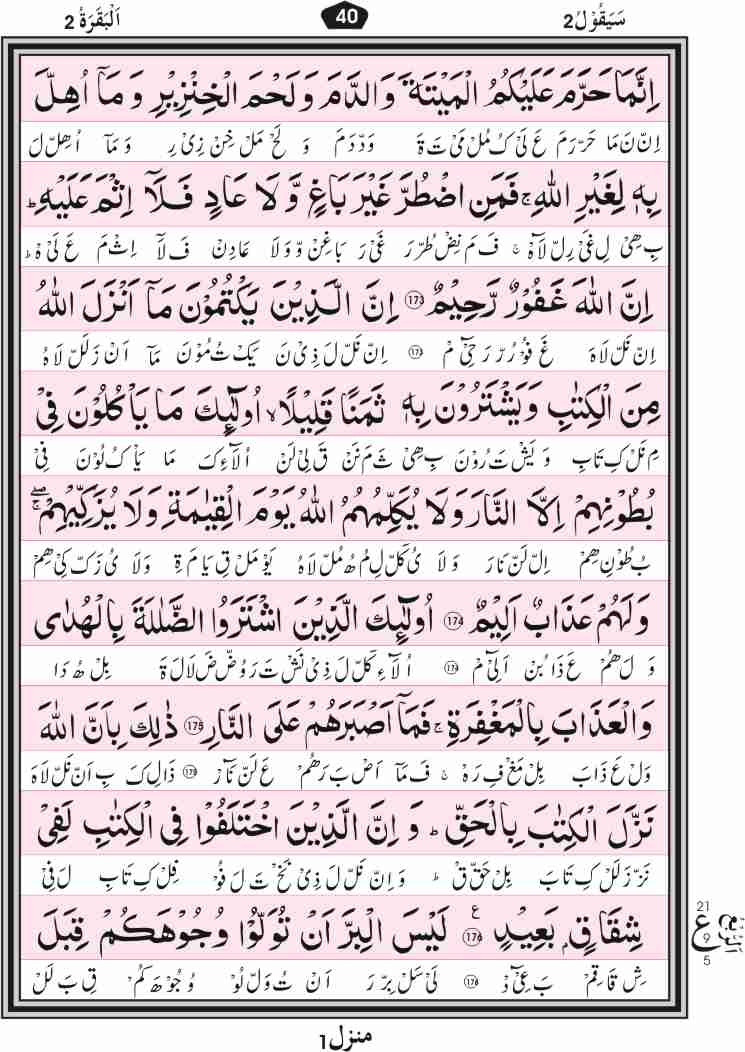 سَيَقُوْلُ 2
40
اَلْبَقَرَةُ 2
اِنَّمَا حَرَّمَ عَلَيْكُمُ الْمَيْتَةَ وَالدَّمَ وَلَحْمَ الْخِنْزِيْرِ وَ مَاۤ اُهِلَّ
اِنّ نَ مَا حَرّ رَ مَ عَ لَىْ كُ مُلْ مَىْ تَ ةَ وَدّ دَ مَ وَ لَحْ مَلْ خِنْ زِىْ رِ وَ مَآ اُ هِلّ لَ
بِهٖ لِغَيْرِ اللّٰهِ ۚ فَمَنِ اضْطُرَّ غَيْرَ بَاغٍ وَّ لَا عَادٍ فَلَاۤ اِثْمَ عَلَيْهِ ؕ
بِ هِىْ لِ غَىْ رِلّ لَاهْ ۚ فَ مَ نِضْ طُرّ رَ غَىْ رَ بَا غِنْ وّ وَ لَا عَا دِنْ فَ لَآ اِثْ مَ عَ لَىْ هْ ؕ
اِنَّ اللّٰهَ غَفُوْرٌ رَّحِيْمٌ ‏173 اِنَّ الَّذِيْنَ يَكْتُمُوْنَ مَاۤ اَنْزَلَ اللّٰهُ
اِنّ نَلّ لَا هَ غَ فُوْ رُرّ رَ حِىْٓ مْ ‏173 اِنّ نَلّ لَ ذِىْ نَ يَكْ تُ مُوْ نَ مَآ اَنْ زَ لَلّ لَا هُ
مِنَ الْكِتٰبِ وَيَشْتَرُوْنَ بِهٖ ثَمَنًا قَلِيْلًا ۙ اُولٰٓئِكَ مَا يَاْكُلُوْنَ فِىْ
مِ نَلْ كِ تَا بِ وَ يَشْ تَ رُوْ نَ بِ هِىْ ثَ مَ نَنْ قَ لِىْ لَنْ اُ لَآ ءِ كَ مَا يَاْ كُ لُوْ نَ فِىْ
بُطُوْنِهِمْ اِلَّا النَّارَ وَلَا يُكَلِّمُهُمُ اللّٰهُ يَوْمَ الْقِيٰمَةِ وَلَا يُزَكِّيْهِمْ ۖۚ
بُ طُوْ نِ هِمْ اِلّ لَنّ نَا رَ وَ لَا ىُ كَلّ لِ مُ هُ مُلّ لَا هُ يَوْ مَلْ قِ يَا مَ ةِ وَ لَا ىُ زَكّ كِىْ هِمْ
وَلَهُمْ عَذَابٌ اَلِيْمٌ ‏174 اُولٰٓئِكَ الَّذِيْنَ اشْتَرَوُا الضَّلٰلَةَ بِالْهُدٰى
وَ لَ هُمْ عَ ذَا بُنْ اَ لِىْٓ مْ ‏174 اُ لَآ ءِ كَلّ لَ ذِىْ نَشْ تَ رَ وُضّ ضَ لَا لَ ةَ بِلْ هُ دَا
وَالْعَذَابَ بِالْمَغْفِرَةِ ۚ فَمَاۤ اَصْبَرَهُمْ عَلَى النَّارِ ‏175 ذٰلِكَ بِاَنَّ اللّٰهَ
وَلْ عَ ذَا بَ بِلْ مَغْ فِ رَ هْ ۚ فَ مَآ اَصْ بَ رَ هُمْ عَ لَنّ نَآ رْ ‏175 ذَا لِ كَ بِ اَنّ نَلّ لَا هَ
نَزَّلَ الْكِتٰبَ بِالْحَقِّ ؕ وَ اِنَّ الَّذِيْنَ اخْتَلَفُوْا فِى الْكِتٰبِ لَفِىْ
نَزّ زَ لَلْ كِ تَا بَ بِلْ حَقّ قْ ؕ وَ اِنّ نَلّ لَ ذِىْ نَخْ تَ لَ فُوْ فِلْ كِ تَا بِ لَ فِىْ
شِقَاقٍۭ بَعِيْدٍ ‏176 ع لَيْسَ الْبِرَّ اَنْ تُوَلُّوْا وُجُوْهَكُمْ قِبَلَ
شِ قَا قِمْ بَ عِىْٓ دْ ‏176 لَىْ سَلْ بِرّ رَ اَنْ تُ وَلّ لُوْ وُ جُوْ هَ كُمْ قِ بَ لَلْ
21
ع
9
5
الربع
منزل 1